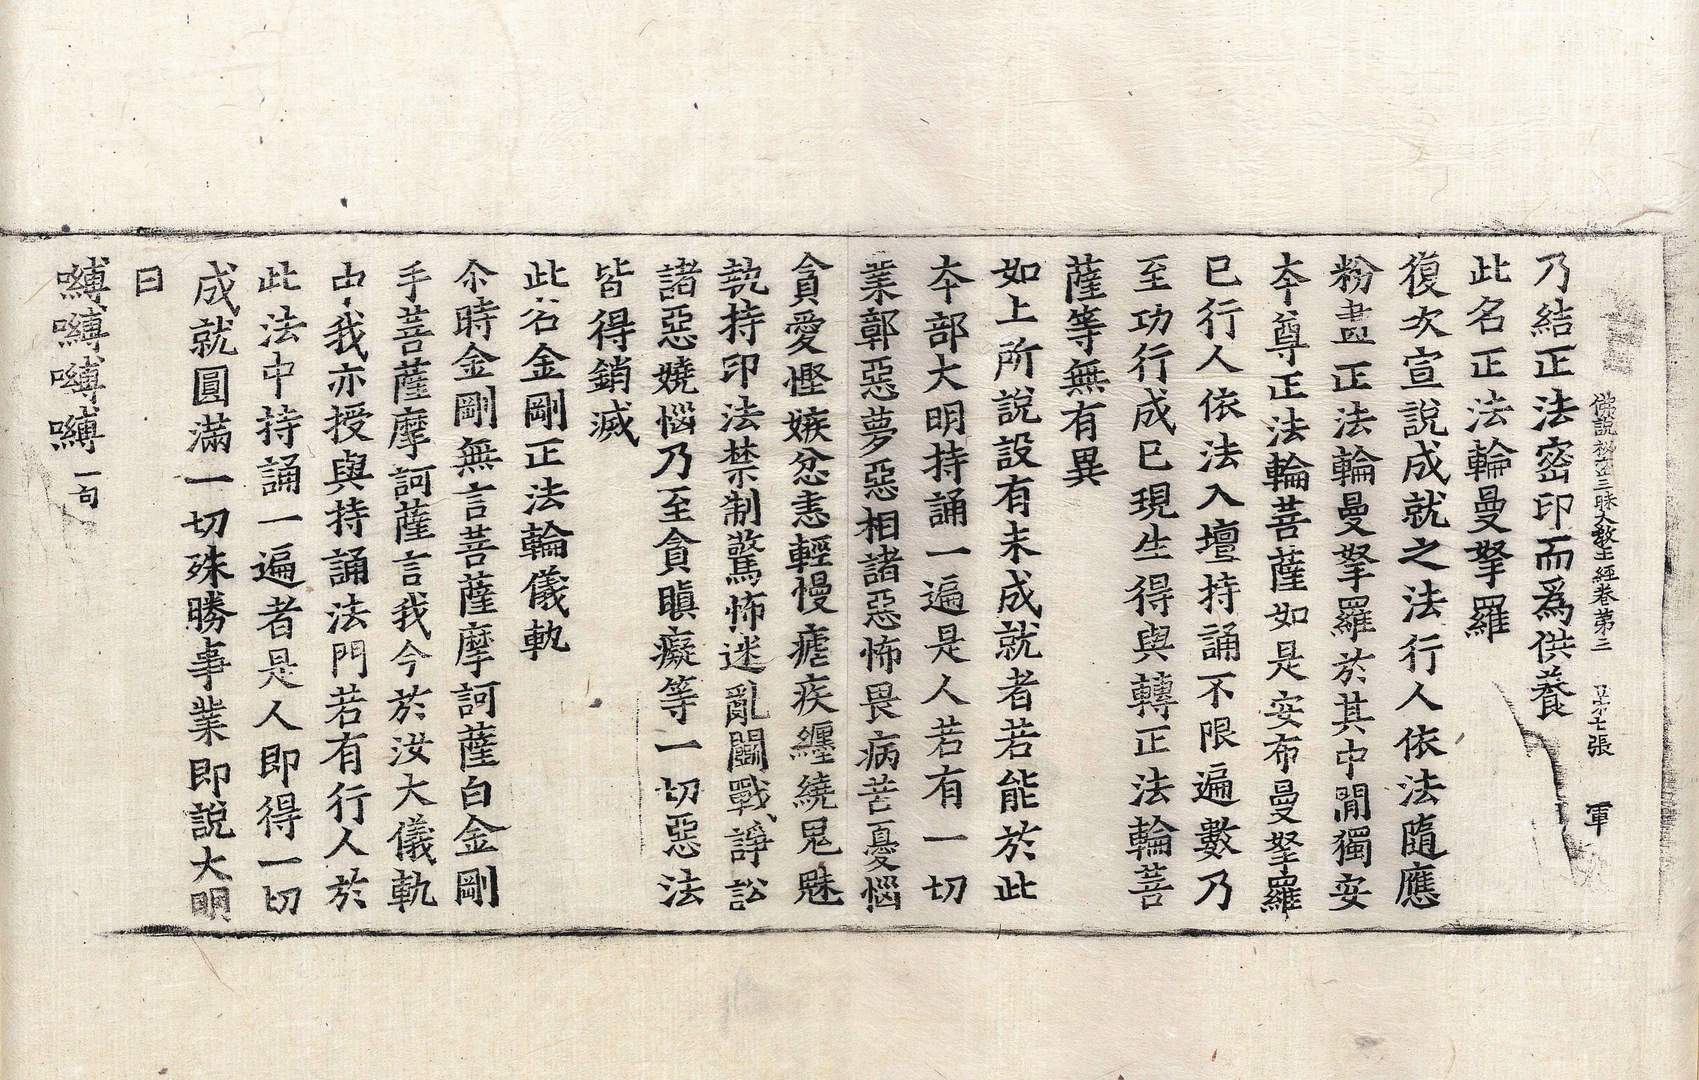 佛說秘密三昧大敎王經卷第三 第七張 軍
乃結正法密印而爲供養
此名正法輪曼拏羅
復次宣說成就之法行人依法隨應
粉畫正法輪曼拏羅於其中間獨安
本尊正法輪菩薩如是安布曼拏羅
已行人依法入壇持誦不限遍數乃
至功行成已現生得與轉正法輪菩
薩等無有異
如上所說設有未成就者若能於此
本部大明持誦一遍是人若有一切
業鄣惡夢惡相諸惡怖畏病苦憂惱
貪愛慳嫉忿恚輕慢瘧疾纏繞鬼魅
執持印法禁制驚怖迷亂鬭戰諍訟
諸惡嬈惱乃至貪瞋癡等一切惡法
皆得銷滅
此名金剛正法輪儀軌
尒時金剛無言菩薩摩訶薩白金剛
手菩薩摩訶薩言我今於汝大儀軌
中我亦授與持誦法門若有行人於
此法中持誦一遍者是人即得一切
成就圓滿一切殊勝事業即說大明
曰
嚩嚩嚩嚩一句